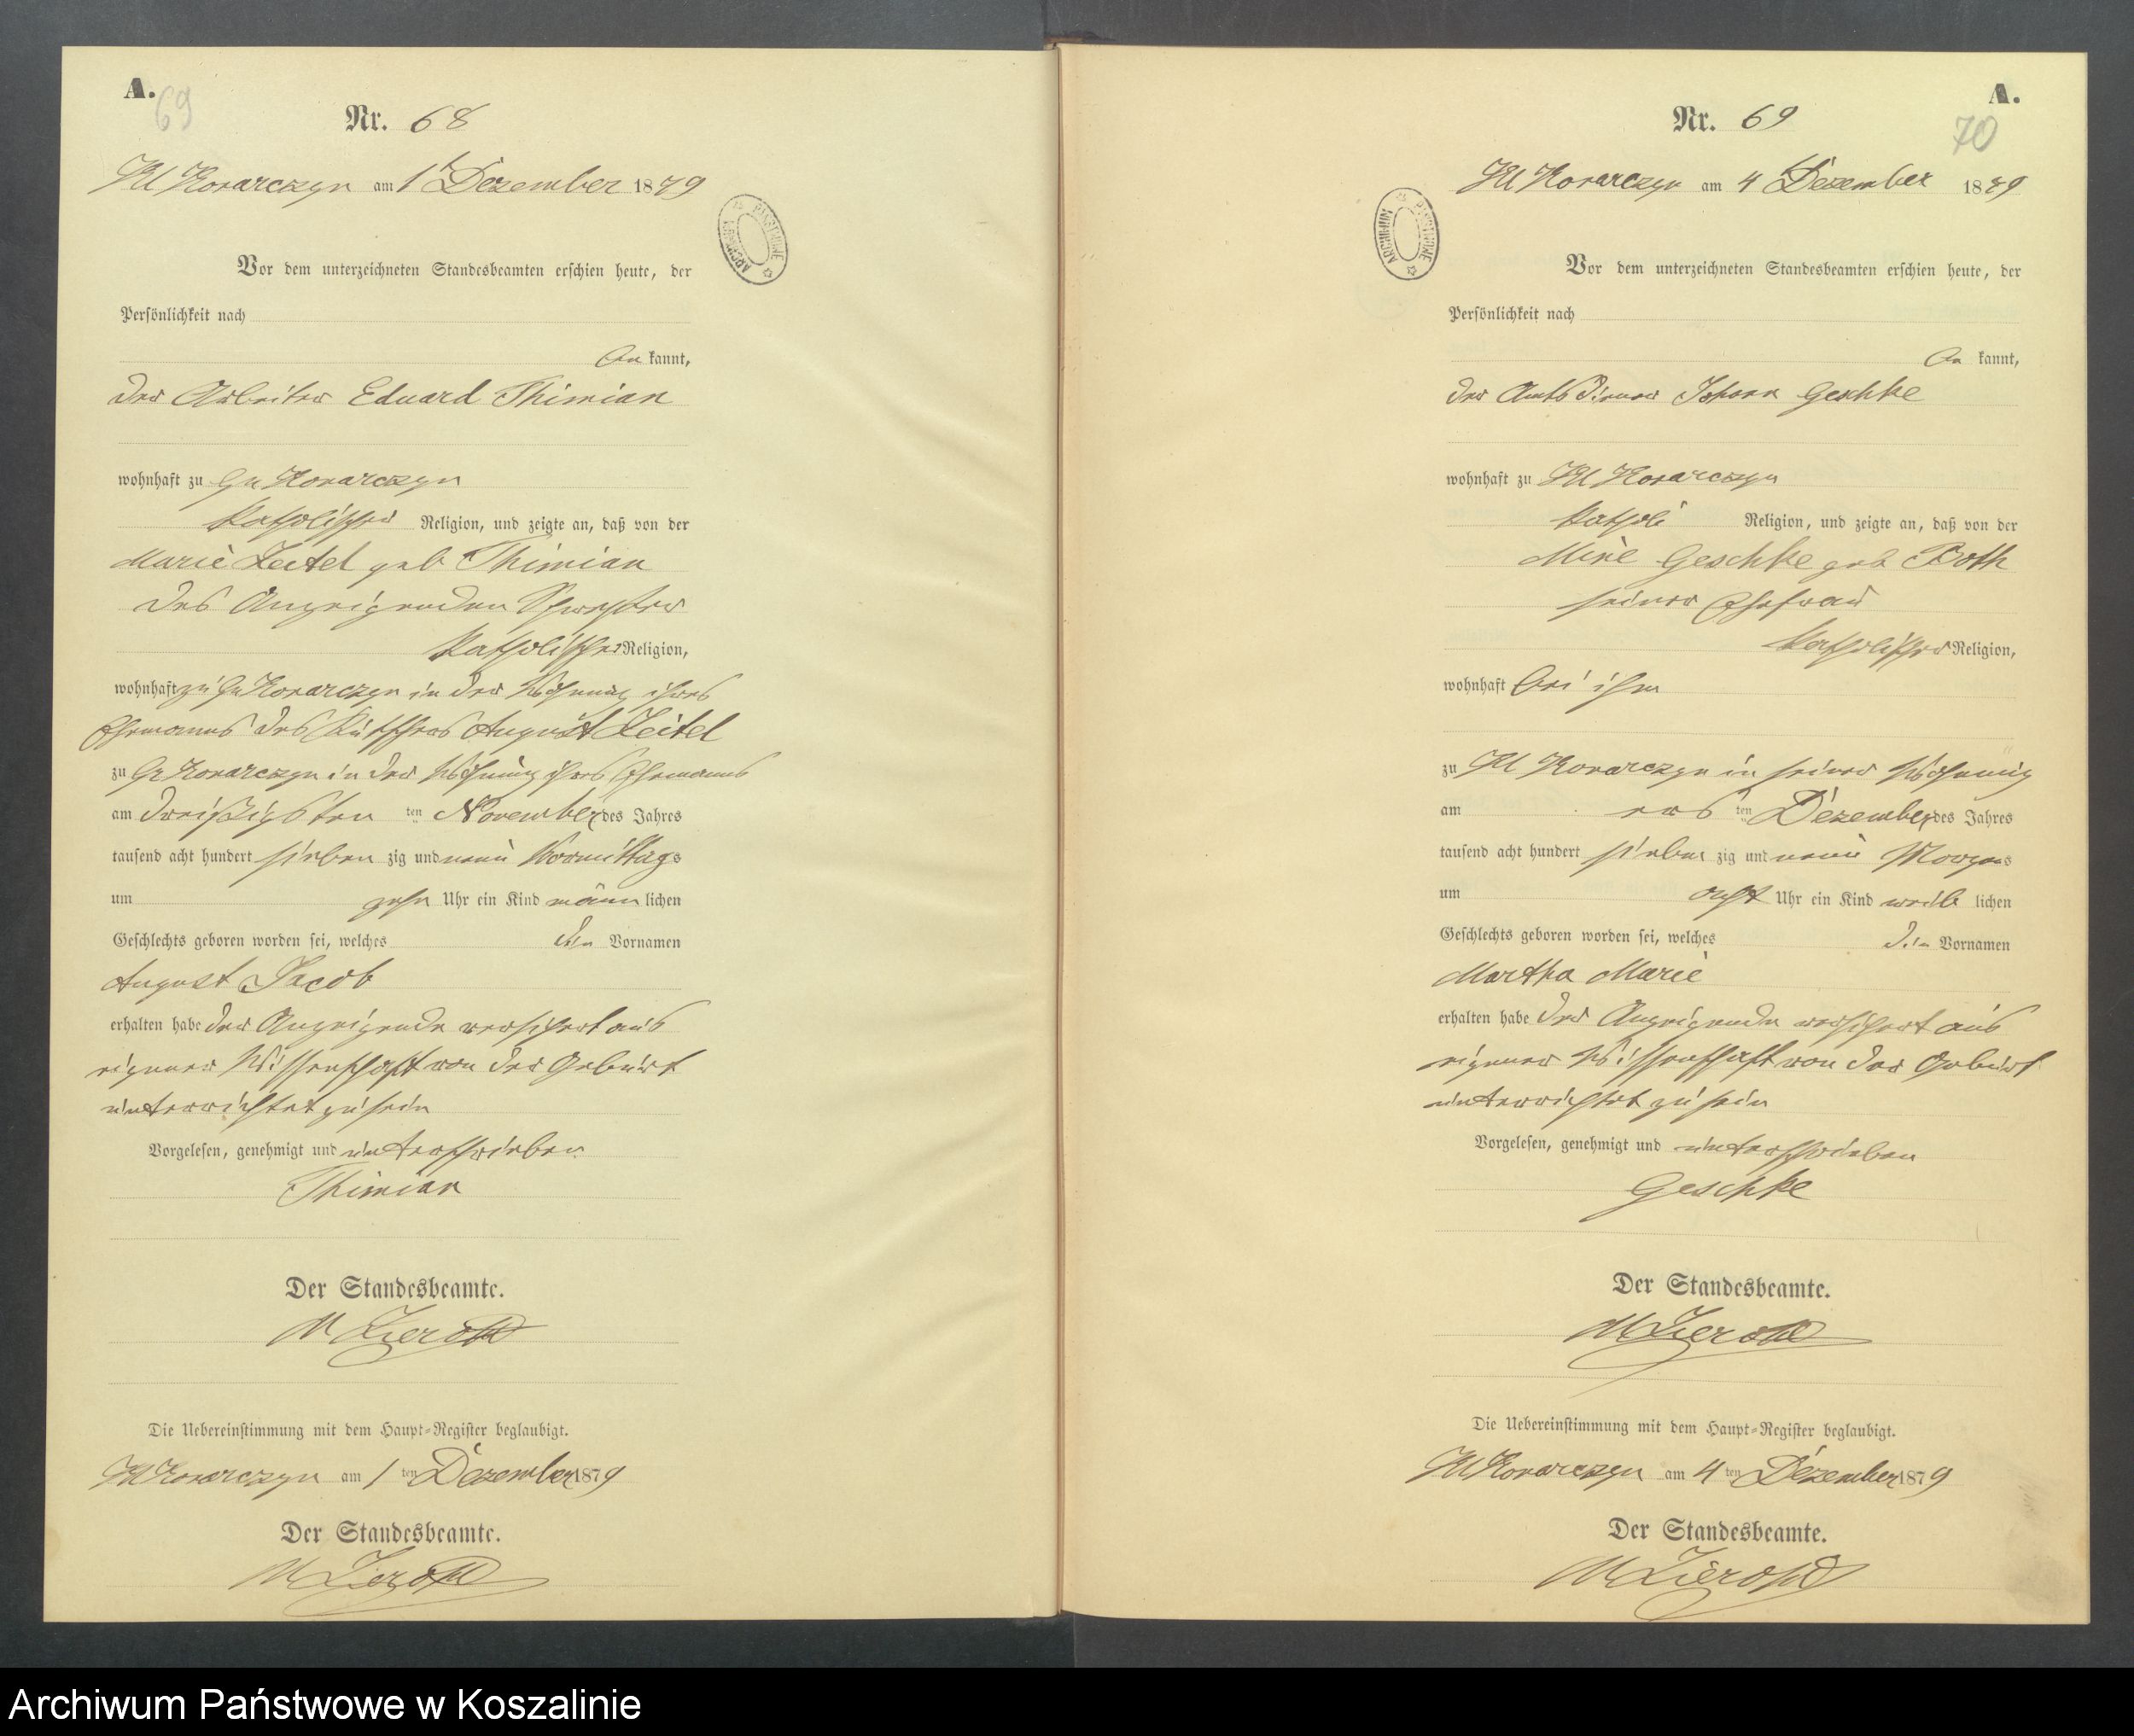 A.
69
Nr. 68
Kl Konarczyn am 1t Dezember 1879
ARCHIWUM PAŃSTWOWE
Vor dem unterzeichneten Standesbeamten erschien heute, der
Persönlichkeit nach
be kannt,
der Arbeiter Eduard Thimian
wohnhaft zu Gr Konarczyn
katholischer Religion, und zeigte an, daß von der
Marie Zeitel geb Thimian
des Anzeigenden Schwester
katholischer Religion,
wohnhaft zu Gr Konarczyn in der Wohnung ihres
Ehemanns des Kutschers August Zeitel
zu Gr Konarczyn in der Wohnung ihres Ehemanns
am dreißigsten ten November des Jahres
tausend acht hundert sieben zig und neun Vormittags
um zehn Uhr ein Kind männ lichen
Geschlechts geboren worden sei, welches den Vornamen
August Jacob
erhalten habe der Anzeigende versichert aus
eigener Wissenschaft von der Geburt
unterrichtet zu sein
Vorgelesen, genehmigt und unterschrieben
Thimian
Der Standesbeamte.
M
Die Uebereinstimmung mit dem Haupt-Register beglaubigt.
Kl Konarczyn am 1 ten Dezember 1879
Der Standesbeamte.
M
A.
70
Nr. 69
Kl Konarczyn am 4 Dezember 1879
ARCHIWUM PAŃSTWOWE
Vor dem unterzeichneten Standesbeamten erschien heute, der
Persönlichkeit nach
be kannt,
der Amtsdiener Johann Geschke
wohnhaft zu Kl Konarczyn
katholi Religion, und zeigte an, daß von der
Mine Geschke geb Both
seiner Ehefrau
katholischer Religion,
wohnhaft bei ihm
zu Kl Konarczyn in seiner Wohnung
am ers ten Dezember des Jahres
tausend acht hundert sieben zig und neun Morgens
um acht Uhr ein Kind weib lichen
Geschlechts geboren worden sei, welches die Vornamen
Martha Marie
erhalten habe der Anzeigende versichert aus
eigener Wissenschaft von der Geburt
unterrichtet zu sein
Vorgelesen, genehmigt und unterschrieben
Geschke
Der Standesbeamte.
M
Die Uebereinstimmung mit dem Haupt-Register beglaubigt.
Kl Konarczyn am 4 ten Dezember 1879
Der Standesbeamte.
M
Archiwum Państwowe w Koszalinie